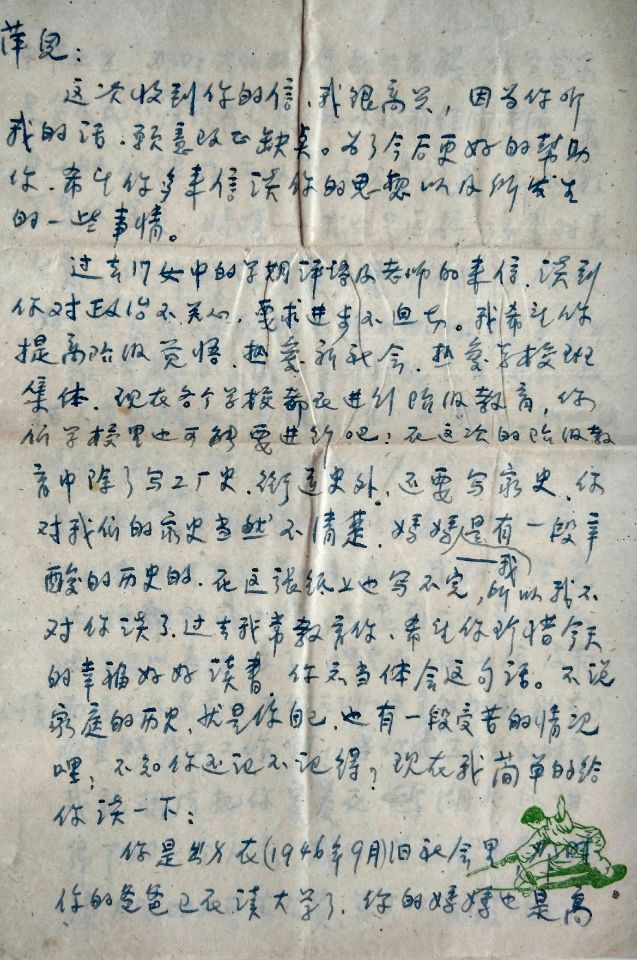 萍兒：
这次收到你的信、我很高兴，因为你听
我的话、愿意改正缺点。为了今后更好的帮助
你、希望你多来信谈你的思想以及所发生
的一些事情。
过去17女中的学期评语及老师的来信、谈到
你对政治不关心、要求进步不迫切。我希望你
提高阶级觉悟、热爱新社会、热爱学校班
集体、现在各个学校都在进行阶级教育，你
们学校里也可能要进行吧；在这次的阶级教
育中除了写工厂史、街道史外、还要写家史、你
对我们的家史当然不清楚、妈妈是有一段辛
酸的历史的、在这张纸上也写不完，所以我不
对你谈了、过去我常教育你、希望你珍惜今天
的幸福好好读书、你应当体会这句话。不说
家庭的历史、就是你自己、也有一段受苦的情况
哩；不知你还记不记得？现在我简单的给
你谈一下：
你是出生在(1946年9月)旧社会里 那时
你的爸爸已在读大学了、你的妈妈也是高